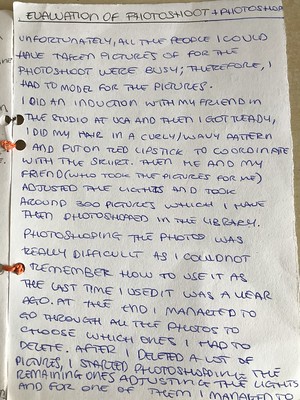 EVALUATION OF PHOTOSHOOT + PHOTOSHOP
UNFORTUNATELY, ALL THE PEOPLE I COULD
HAVE TAKEN PICTURES OF FOR THE
PHOTOSHOOT WERE BUSY; THEREFORE, I
HAD TO MODEL FOR THE PICTURES.
I DID AN INDUCTION WITH MY FRIEND IN
THE STUDIO AT UCA AND THEN I GOT READY,
I DID MY HAIR IN A CURLY/WAVY PATTERN
AND PUT ON RED LIPSTICK TO COORDINATE
WITH THE SKIRT. THEN ME AND MY
FRIEND (WHO TOOK THE PICTURES FOR ME)
ADJUSTED THE LIGHTS AND TOOK
AROUND 300 PICTURES WHICH I HAVE
THEN PHOTOSHOPED IN THE LIBRARY.
PHOTOSHOPING THE PHOTOS WAS
REALLY DIFFICULT AS I COULDNOT
REMEMBER HOW TO USE IT AS
THE LAST TIME I USED IT WAS A YEAR
AGO. AT THE END I MANAGED TO
GO THROUGH ALL THE PHOTOS TO
CHOOSE WHICH ONES I HAD TO
DELETE. AFTER I DELETED A LOT OF
PICTURES, I STARTED PHOTOSHOPING THE
REMAINING ONES ADJUSTING THE LIGHTS
AND FOR ONE OF THEM I MANAGED TO